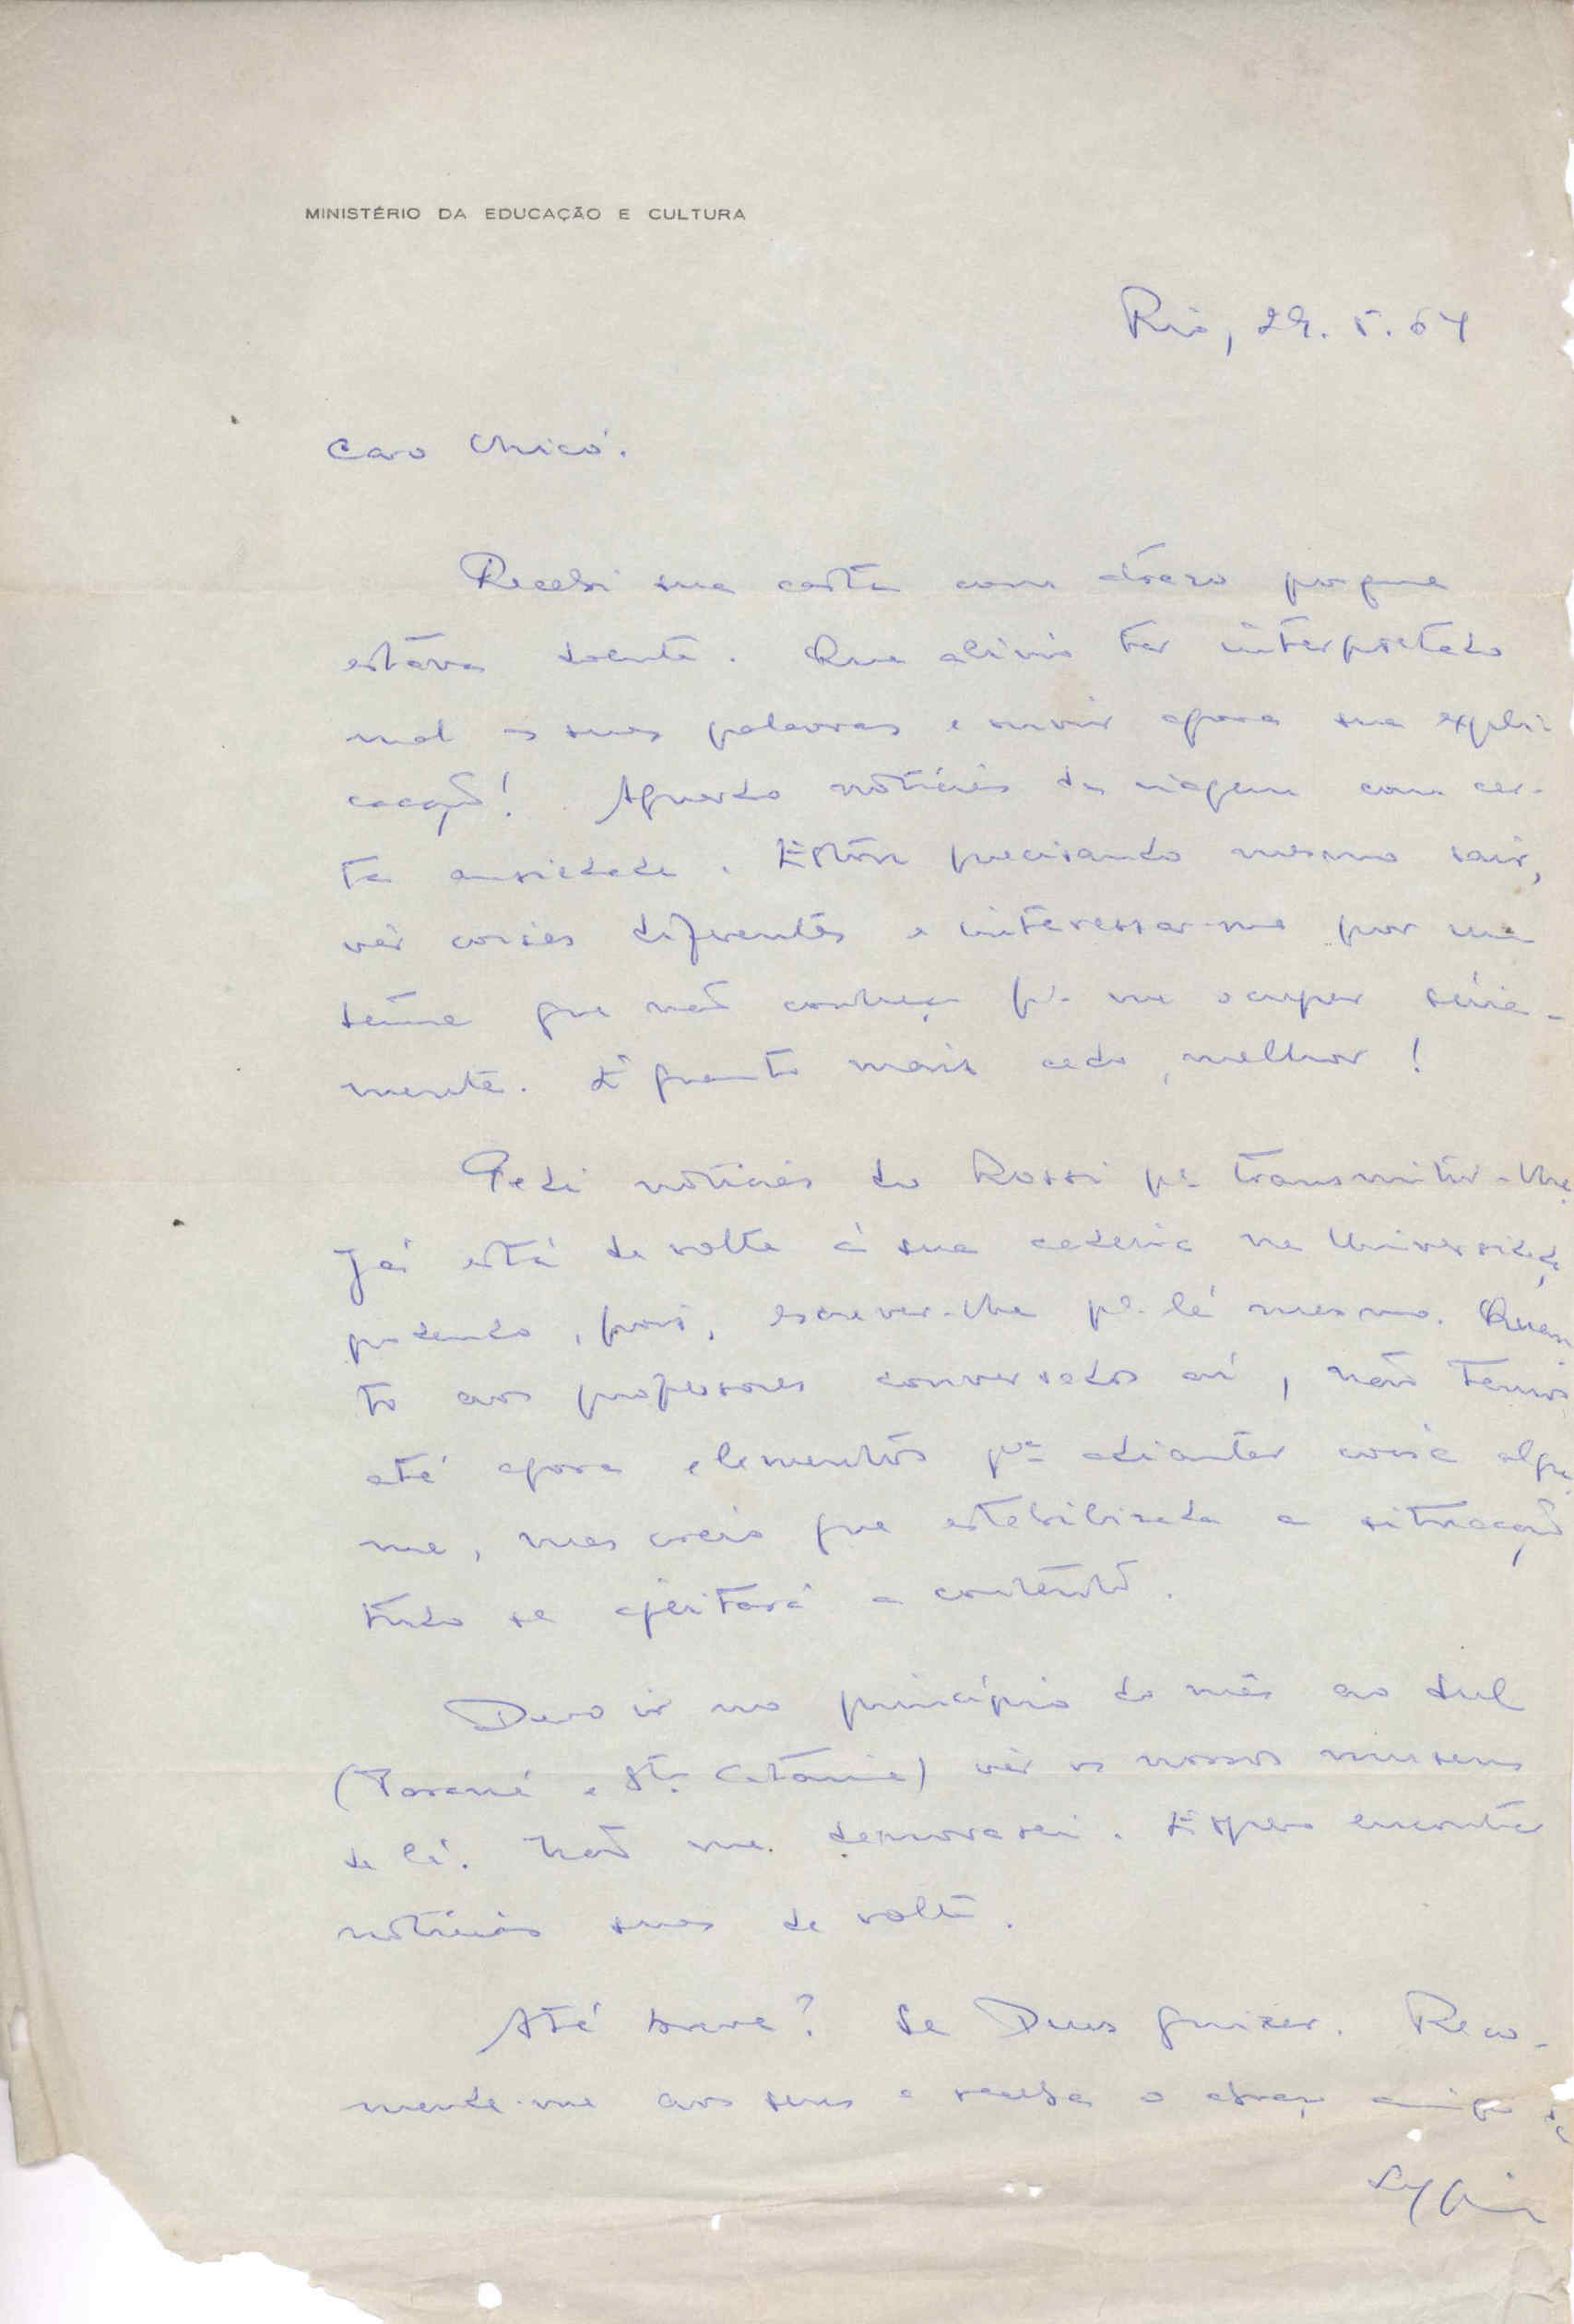 MINISTÉRIO DA EDUCAÇÃO E CULTURA
Rio, 29.5.64
Caro Chicó.
Recebi sua carta com atrazo porque
estava doente. Que alívio ter interpretado
mal as suas palavras e ouvir agora sua expli-
cação! Aguardo notícias da viagem com cer-
ta ansiedade. Estou precisando mesmo sair,
vêr coisas diferentes e interessar-me por um
tema que não conheça pª me ocupar séria-
mente. E quanto mais cedo, melhor!
Pedi notícias do Rossi pª transmitir-lhe.
Já está de volta à sua cadeira na Universidade,
podendo, pois, escrever-lhe pª lá mesmo. Quan-
to aos professores conversados aí, não temos
até agora elementos pª adiantar coisa algu-
ma, mas creio que estabilizada a situação
tudo se ajeitará a contento.
Devo ir no princípio do mês ao Sul
(Paraná e Sta. Catarina) vêr os nossos museus
de lá. Não me demorarei. Espero encontrar
notícias suas de volta.
Até breve? Se Deus quizer. Reco-
mende-me aos seus e receba o abraço amigo de
Lygia